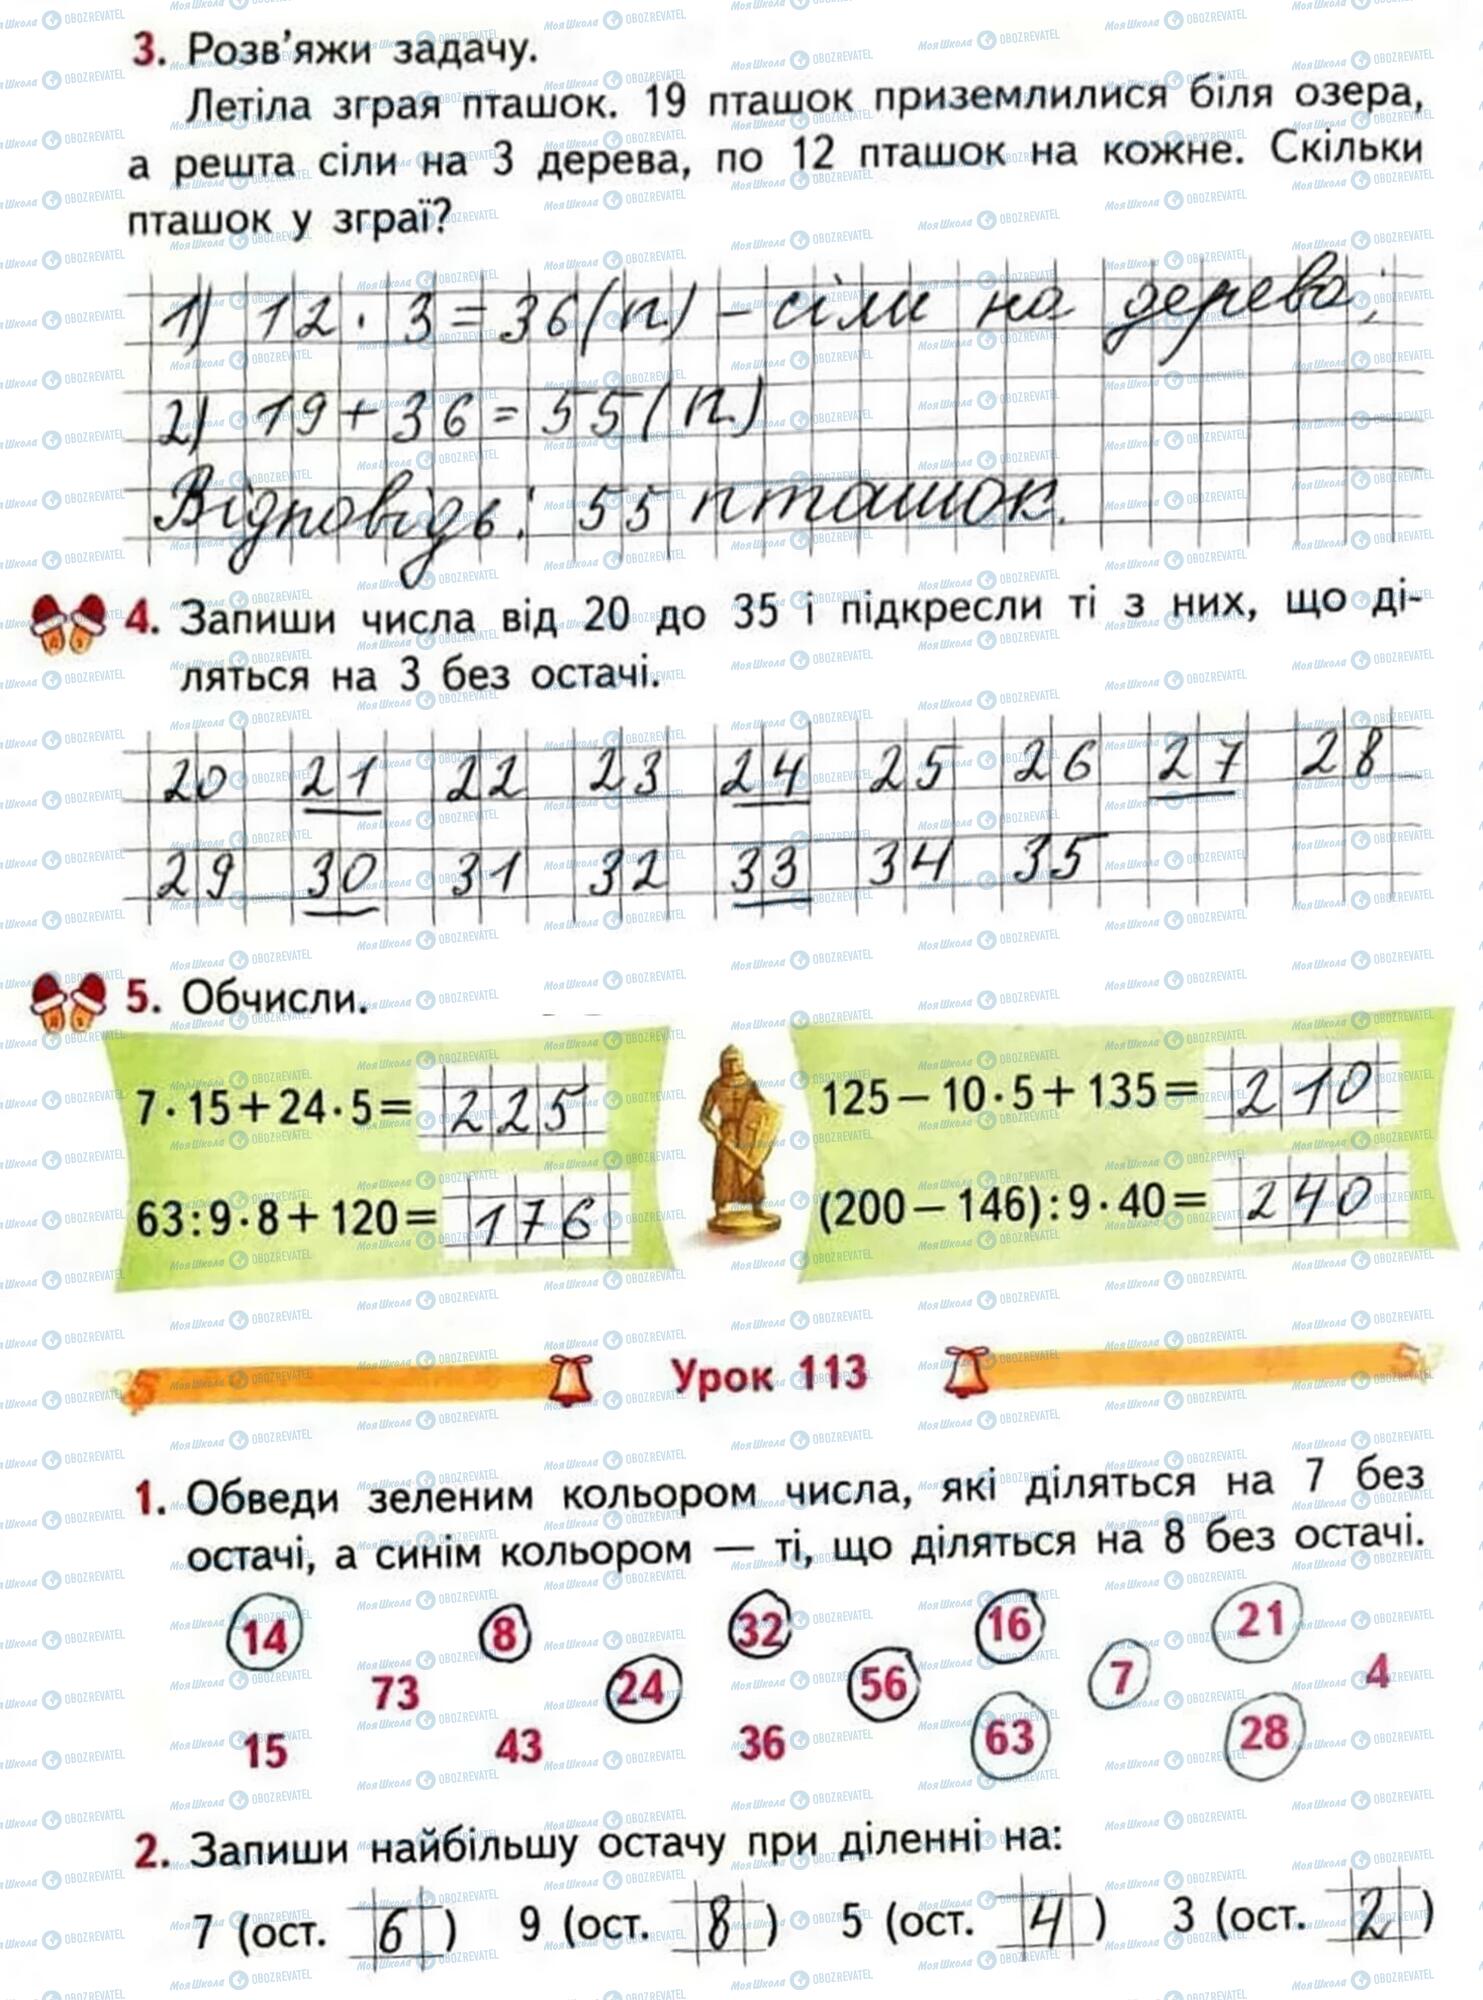 3. Розв'яжи задачу.
Летіла зграя пташок. 19 пташок приземлилися біля озера,
а решта сіли на 3 дерева, по 12 пташок на кожне. Скільки
пташок у зграї?
1) 12 · 3 = 36 (п.) – сіли на дерева;
2) 19 + 36 = 55 (п.)
Відповідь: 55 пташок.
4. Запиши числа від 20 до 35 і підкресли ті з них, що ді-
ляться на 3 без остачі.
20 21 22 23 24 25 26 27 28
29 30 31 32 33 34 35
5. Обчисли.
7 · 15 + 24 · 5 = 225
125 – 10 · 5 + 135 = 210
63 : 9 · 8 + 120 = 176
(200 – 146) : 9 · 40 = 240
Урок 113
1. Обведи зеленим кольором числа, які діляться на 7 без
остачі, а синім кольором — ті, що діляться на 8 без остачі.
14 8 32 16 21
73 24 56 7 4
15 43 36 63 28
2. Запиши найбільшу остачу при діленні на:
7 (ост. 6) 9 (ост. 8) 5 (ост. 4) 3 (ост. 2)
МояШкола OBOZREVATEL